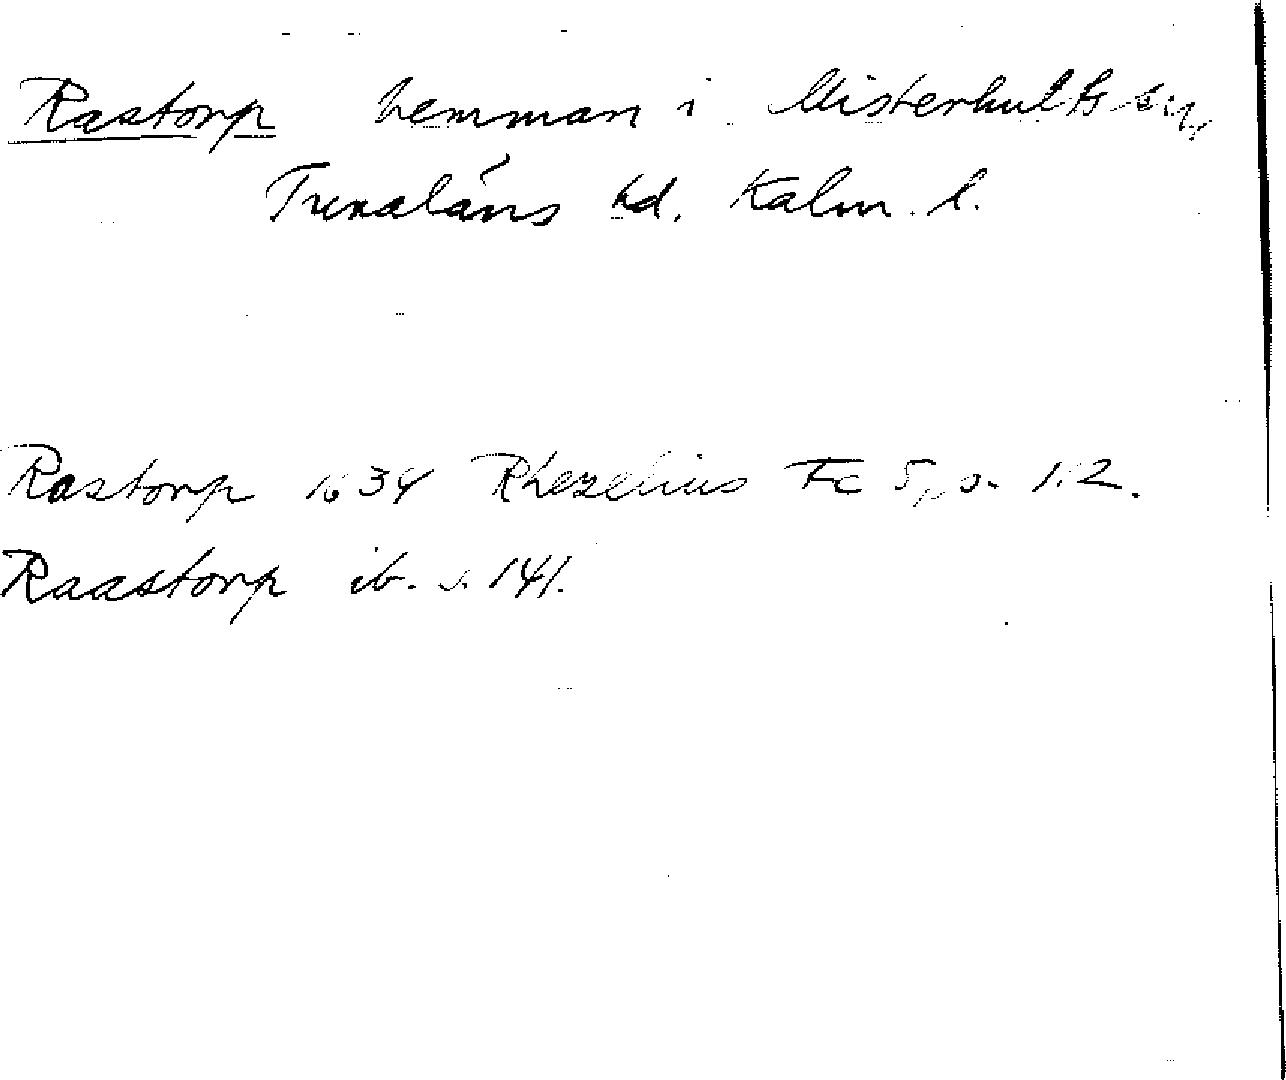 Rastorp hemman i Misterhults sn,
Tunaläns hd. Kalm. l.
Rastorp 1634 Rhezelius Fc 5, s. 1
Raastorp ib. s. 141.